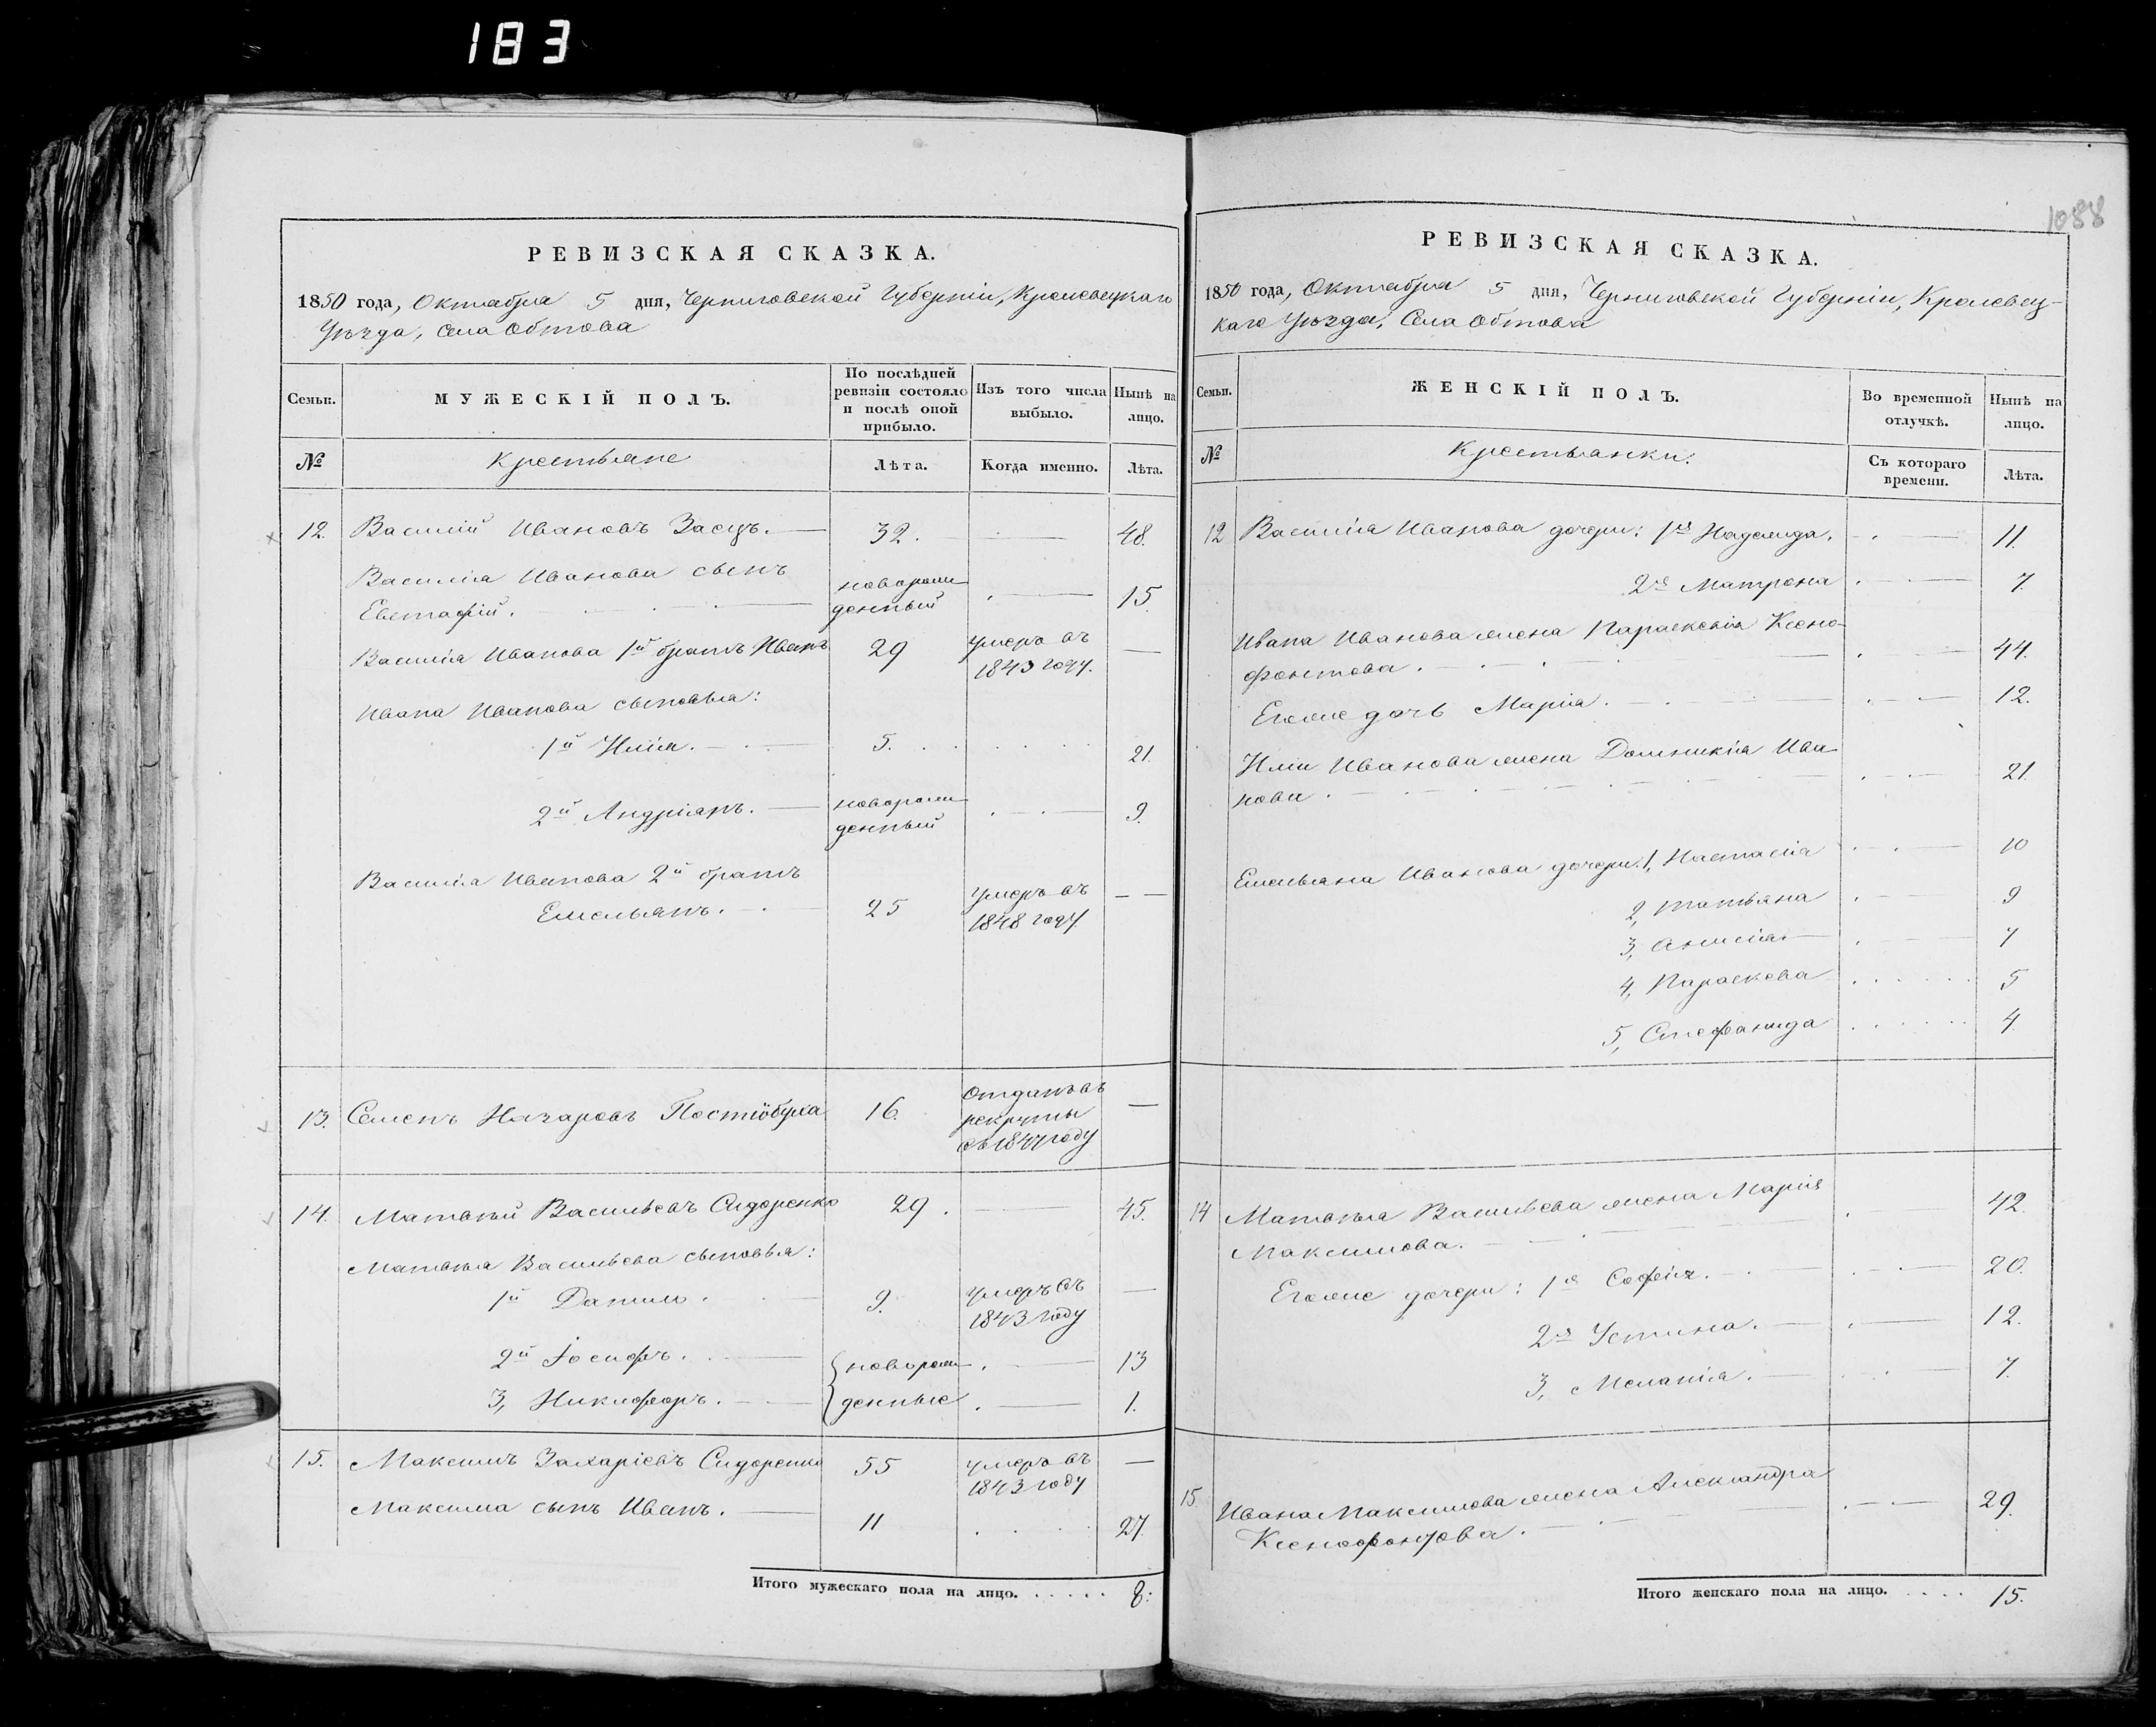 183
РЕВИЗСКАЯ СКАЗКА.
1850 года, Октября 5 дня, Черниговской Губерніи, Кролевецкаго
Уѣзда, Села Обтова
Семьи.
МУЖЕСКІЙ ПОЛЪ.
По послѣдней
ревизіи состояло
и послѣ оной
прибыло.
Изъ того числа
выбыло.
Нынѣ на
лицо.
№
Крестьяне
Лѣта.
Когда именно.
Лѣта.
12. Василій Ивановъ Заецъ. 32. 48.
Василія Иванова сынъ
Евстафій. новорож
денный 15.
Василія Иванова 1й братъ Иванъ 29 умеръ въ
1843 году.
Ивана Иванова сыновья:
1й Илія. 5. 21.
2й Андріянъ. новорож
денный 9.
Василія Иванова 2й братъ
Емельянъ. 25 умеръ въ
1848 году.
13. Семенъ Назаровъ 16. Отданъ въ
рекруты
въ 1847 году
14. Матвѣй Васильевъ Сидоренко 29. 45.
Матвѣя Васильева сыновья:
1й Данило. 9. умеръ въ
1843 году
2й Іосифъ. новорож 13
3, Никифоръ. денные 1.
15. Максимъ Захаріевъ Сидоренко 55 умеръ въ
1843 году
Максима сынъ Иванъ. 11 27.
Итого мужескаго пола на лицо. . . . . . 8:
1088
РЕВИЗСКАЯ СКАЗКА.
1850 года, Октября 5 дня, Черниговской Губерніи, Кролевец-
каго Уѣзда, Села Обтова
Семьи.
ЖЕНСКІЙ ПОЛЪ.
Во временной
отлучкѣ.
Нынѣ на
лицо.
№
Крестьянки.
Съ котораго
времени.
Лѣта.
12 Василія Иванова дочери: 1я Надежда. 11.
2я Матрона 7.
Ивана Иванова жена Параскевія Ксено-
фонтова. 44.
Егоже дочь Марія. 12.
Иліи Иванова жена Домникія Ива
нова. 21.
Емельяна Иванова дочери: 1, Настасія 10
2, Татьяна 9
3, Анисія 7
4, Параскева 5
5, Стефанида 4.
14 Матвѣя Васильева жена Марія
Максимова. 42.
Егоже дочери: 1я Софія. 20.
2я Устина. 12.
3, Меланія. 7.
15. Ивана Максимова жена Александра
Ксенофонтова. 29.
Итого женскаго пола на лицо. . . . . 15.